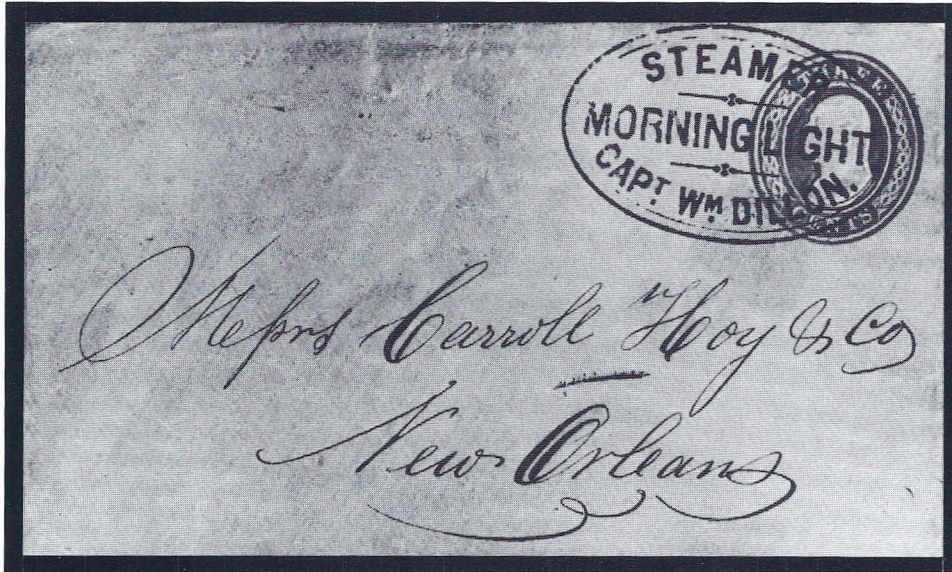 STEAMER
MORNING LIGHT
CAPT WM DILLON.
THREE
CENTS
Messrs Carroll Hoy & Co
New Orleans